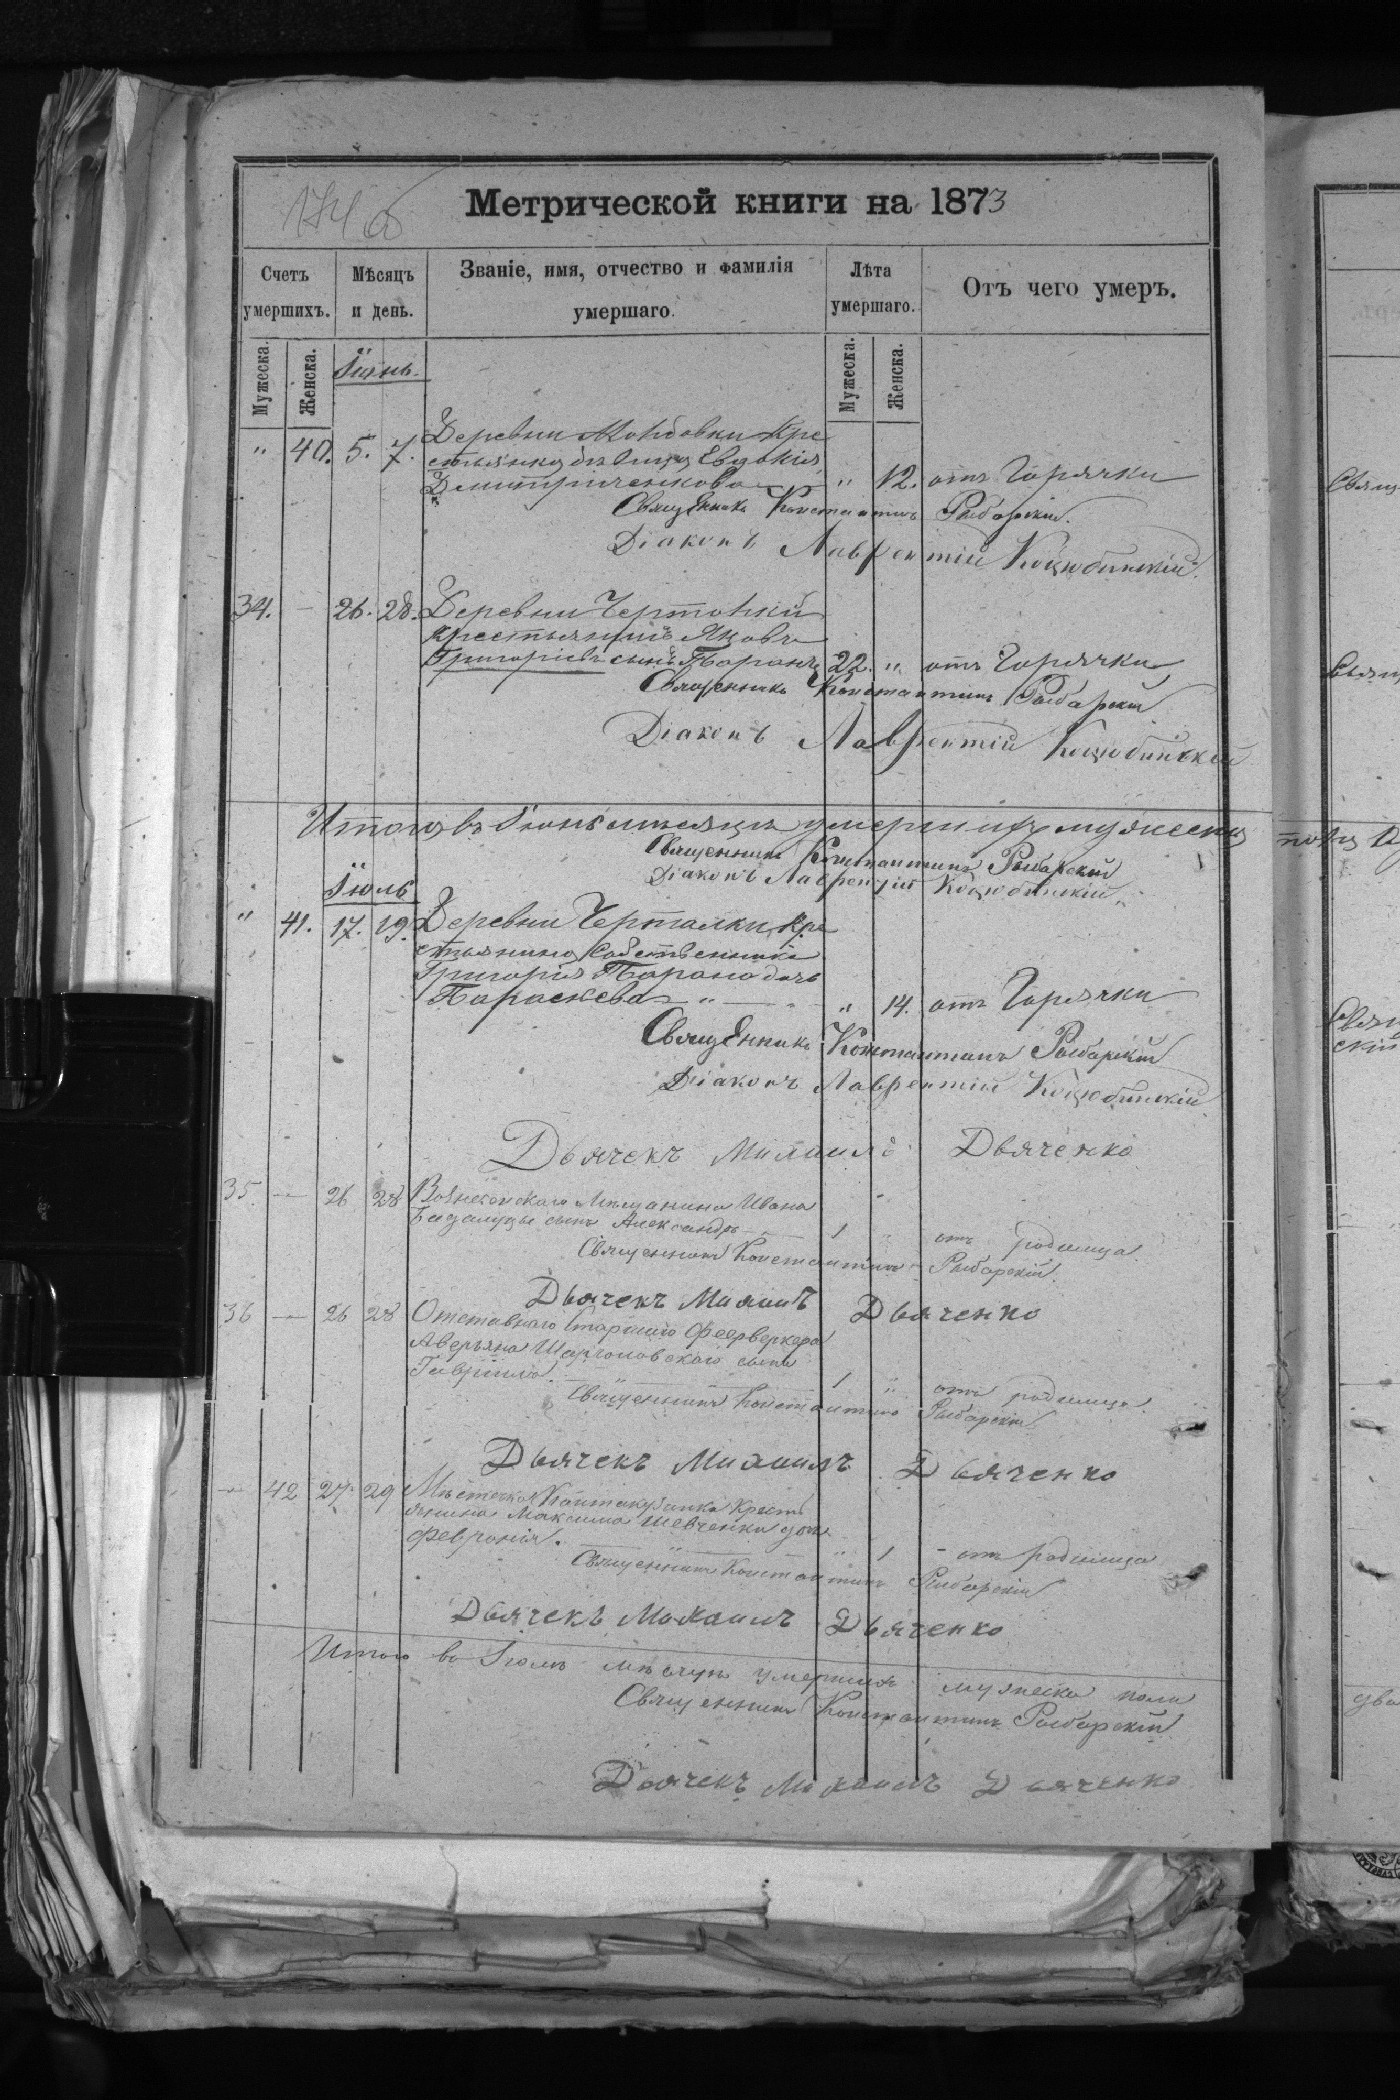 174 об
Метрической книги на 1873
Счетъ умершихъ.
Мѣсяцъ и день.
Званіе, имя, отчество и фамилія умершаго.
Лѣта умершаго.
Отъ чего умеръ.
Мужеска. Женска.
Мужеска. Женска.
Іюнь.
" 40. 5. 7. Деревни Кре
стьянка дѣвица Евдокія
Дмитриченкова " 12. отъ Горячки
Священникъ Константинъ Рыбарскій.
Діаконъ Лаврентій Коцюбинскій.
34. — 26. 28. Деревни
крестьянинъ Яковъ
Григоріевъ сынъ Таранъ 22. " отъ Горячки
Священникъ Константинъ Рыбарскій
Діаконъ Лаврентій Коцюбинскій
Итого въ Іюнѣ мѣсяцѣ умершихъ мужеска
Священникъ Константинъ Рыбарскій
Діаконъ Лаврентій Коцюбинскій.
Іюль
" 41. 17. 19. Деревни Черталки, Кре
стьянина Собственника
Григорія Тарана дочь
Параскева " — " 14. отъ Горячки
Священникъ Константинъ Рыбарскій
Діаконъ Лаврентій Коцюбинскій
Дьячекъ Михаилъ Дьяченко
35. — 26 28 Мѣщанина Ивана
сынъ Александръ 1 " отъ родимца
Священникъ Константинъ Рыбарскій.
Дьячекъ Михаилъ Дьяченко
36 — 26 28 Отставнаго Старшаго Феерверкера
Аверьяна сынъ
Гавріилъ. 1 " отъ родимца.
Священникъ Константинъ Рыбарскій
Дьячекъ Михаилъ Дьяченко
— 42 27. 29 Мѣстечка Кантакузенка Крест
янина Максима Шевченка дочь
Февронія. " 1 - отъ родимца
Священникъ Константинъ Рыбарскій
Дьячекъ Михаилъ Дьяченко
Итого въ Іюлѣ мѣсяцѣ умершихъ мужеска пола
Священникъ Константинъ Рыбарскій
Дьячекъ Михаилъ Дьяченко